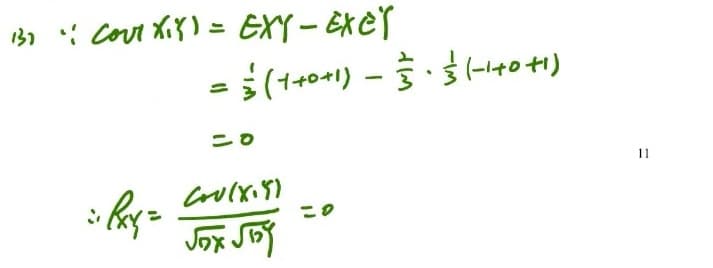 (3) ∵ Cov(X,Y) = EXY − EXEY
= 1/3 (-1+0+1) − 2/3 · 1/3 (-1+0+1)
= 0
11
∴ ρXY = Cov(X,Y) / √DX √DY = 0